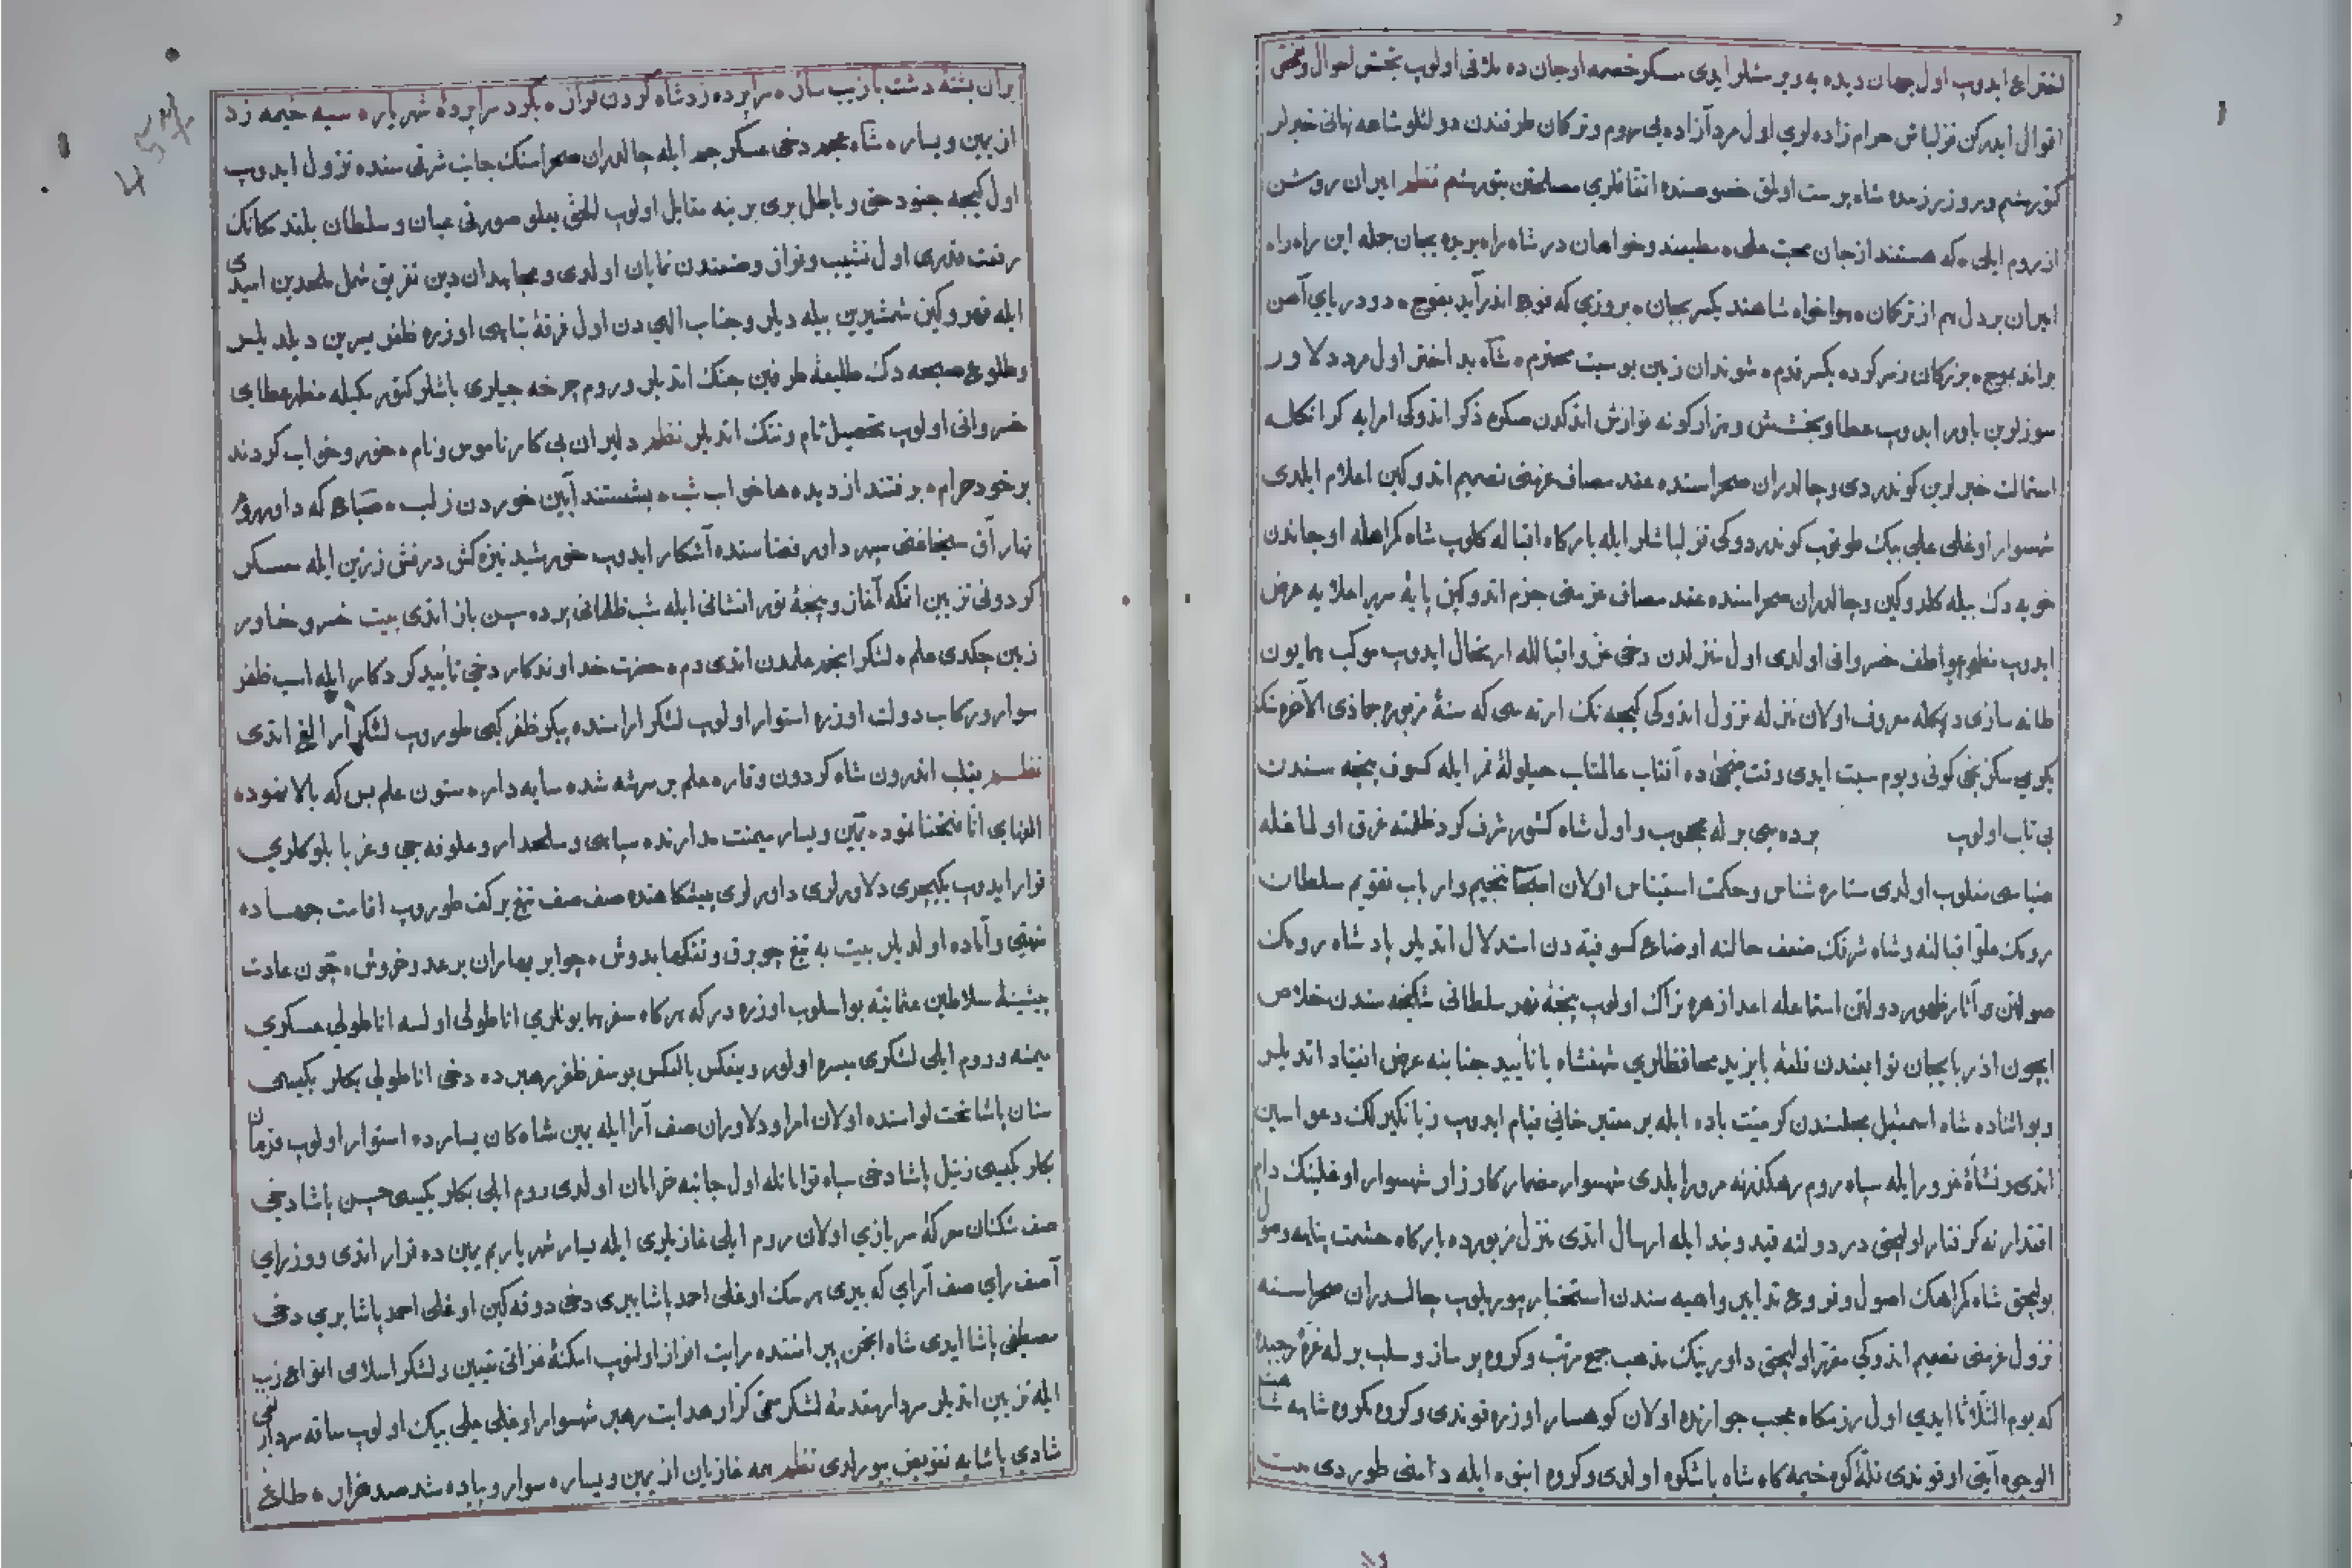 اول جهان دیده به ویرمشلر ایدی معسکر خصمه اوجان ده ملاقی اولوب تجسس احوال و تفحص
اقوال ایدرکن قزلباش حرام زاده لری اول مرد آزاده یی روم و ترکان طرفندن دولتلو شاهه نهانی خبرلر
کتورمشم و بروز رزمده شاه پرست اولمق خصوصنده اتفاقلری مصلحتن بتورمشم نظم ایران روشن
از روم ایلی که هستند از جان محب علی مطیعند و خواهان در شاه را بجان جمله این راه را
امیران بردل هم از ترکان هواخواه شاهند یکسر بجان بروزی که فوج اندر آید بفوج دو دریای آهن
براند بموج ز سر کرده یکسر قدم شوندان زمین بوسیت محترم شاه بد اختر اول مرد دلاور
سوزلرین باور ایدوب عطا و بخشش و هزار کونه نوازش اتدکدن صکره ذکر اتدوکی امرایه
استمالت خبرلرین کوندردی و چالدران صحراسنده عقد مصاف عزمنی تصمیم اتدوکین اعلام ایلدی
شهسوار اوغلی علی بیک طوتوب کوندردوکی قزلباشلر ایله بارکاه اقباله کلوب شاه کمراهله اوجاندن
خویه دک بیله کلدوکین و چالدران صحراسنده عقد مصاف عزمنی جزم اتدوکین پایهٔ سریر اعلایه عرض
ایدوب مظهر عواطف خسروانی اولدی اول منزلدن دخی عز و اقبالله ارتحال ایدوب موکب همایون
دیمکله معروف اولان منزله نزول اتدوکی کیجه نک ارته سی که سنهٔ مزبوره جماذی الآخره سنک
یکرمی سکزنجی کونی و یوم سبت ایدی وقت ضحی ده آفتاب عالمتاب حیلولهٔ قمر ایله کسوف پنجه سندن
بی تاب اولوب پرده سی برله محجوب و اول شاه کشور شرف کرد ظلمته غرق اولمغله
ضیاسی مغلوب اولدی ستاره شناس و حکمت استیناس اولان اصحاب تنجیم و ارباب تقویم سلطان
رومک علو اقبالنه و شاه شرقک ضعف حالنه اوضاع کسوفیه دن استدلال اتدیلر پادشاه رومک
صولتن و آثار ظهور دولتن استماعله اعدا زهره چاک اولوب پنجهٔ قهر سلطانی شکنجه سندن خلاص
ایچون اذربایجان توابعندن قلعهٔ بایزید محافظلری شهنشاه با تأیید جنابنه عرض انقیاد اتدیلر
و بو اثناده شاه اسمعیل مجلسندن کرمیت باده ایله بر معتبر خانی قیام ایدوب زبانکیرلک دعواسین
اتدی و نشأهٔ غرور ایله سپاه روم رهکذرنه مرور ایلدی شهسوار مضمار کارزار شهسوار اوغلینک دام
اقتدارنه کرفتار اولیجق در دولته قید و بند ایله ارسال اتدی منزل مزبورده بارکاه حشمت پناهه وصول
بولیجق شاه کمراهک اصول و فروع تدابیر واهیه سندن استخبار بیوریلوب چالدران صحراسنه
نزول عزمنی تصمیم اتدوکی مقرر اولیجق داورینک مذهب جمع مرتب و کروه پر ساز و سلب برله غرهٔ رجبده
که یوم الثلاثا ایدی اول رزمکاه عجب جوارنده اولان کوهسار اوزره قوندی و کروه بکروه شاهت
الوجوه آیتی اوقوندی قلهٔ کوه خیمه کاه شاه باشکوه اولدی و کروه انبوه ایله دامنی طوردی بیت
بران پشته دشت بازیب ساز سراپرده زد شاه کردن فراز بکرد سراپردهٔ شهریار سپه خیمه زد
از یمین و یسار شاه عجم دخی عسکر جم ایله چالدران صحراسنک جانب شرقی سنده نزول ایدوب
اول کیجه جنود حق و باطل بری برینه مقابل اولوب الحق یعلو صورتی عیان و سلطان بلند مکانک
رفعت قدری اول نشیب و فراز وضعندن نمایان اولدی و مجاهدان دین تفریق شمل ملحدین امیدی
ایله قهر و کین شمشیرین بیله دیلر و جناب الهی دن اول فرقهٔ تباهی اوزره ظفر یسرین دیله دیلر
و طلوع صبحه دک طلیعهٔ طرفین جنک اتدیلر و روم چرخه جیلری باشلر کتورمکیله مظهر عطای
خسروانی اولوب تحصیل نام و ننک اتدیلر نظم دلیران پی کار ناموس و نام خور و خواب کردند
بر خود حرام برفتند از دیده ها خواب شب بشستند آیین خوردن ز لب صباح که داور روز
نهار آق سنجاغنی سپهر داور فضاسنده آشکار ایدوب خورشید نیزه کش درفش زرین ایله معسکر
کردونی تزیین اتمکه آغاز و پنجهٔ نور افشانی ایله شب ظلمانی پرده سین باز اتدی بیت خسرو خاور
زمین چکدی علم لشکر انجم علمدن اتدی رم حضرت خداوندکار دخی تأیید کردکار ایله اسب ظفر
سوار و رکاب دولت اوزره استوار اولوب لشکر اراسنده پیکر ظفر کبی طوروب لشکر آرالغ اتدی
نظم بقلب اندرون شاه کردون وقار علم بر سرش شد سایه دار ستون علم بس که بالا نموده
الفهای انا فتحنا نمود یمین و یسار میمنت مدارنده سپاهی و سلحدار و علوفه جی و غربا بلوکلری
قرار ایدوب یکیچری دلاورلری داورلری پیشکاهنده صف صف تیغ بر کف طوروب اقامت جهاده
متهی و آماده اولدیلر بیت به تیغ چو برق و تفنکها بدوش چو ابر بهاران برعد و خروش چون عادت
پیشینهٔ سلاطین عثمانیه بو اسلوب اوزره در که هرکاه سفر همایونلری اناطولی اولسه اناطولی عسکری
میمنه و روم ایلی لشکری میسره اولور و ینعکس بالعکس بو سفر ظفر رهبرده دخی اناطولی بکلر بکیسی
سنان پاشا تحت لواسنده اولان امرا و دلاوران صف آرا ایله یمین شاه کان یسارده استوار اولوب قرمان
بکلر بکیسی زینل پاشا دخی سپاه توانا ایله اول جانبه خرامان اولدی روم ایلی بکلر بکیسی حسن پاشا دخی
صف شکنان معرکهٔ سربازی اولان روم ایلی غازیلری ایله یسار شهریار یم یمین ده قرار اتدی و وزرای
آصف رای صف آرای که بیری هرسک اوغلی احمد پاشا بیری دخی دوقه کین اوغلی احمد پاشا بری دخی
مصطفی پاشا ایدی شاه انجمن پیراسنده رایت افراز اولنوب امکنهٔ غزاتی تعیین و لشکر اسلامی انواع زیب
ایله تزیین اتدیلر سردار مقدمهٔ لشکر حق کزار هدایت رهبر شهسوار اوغلی علی بیک اولوب ساقه سردارلغی
شادی پاشایه تفویض بیورلدی نظم همه غازیان از یمین و یسار سوار و پیاده شد صد هزار طلایع